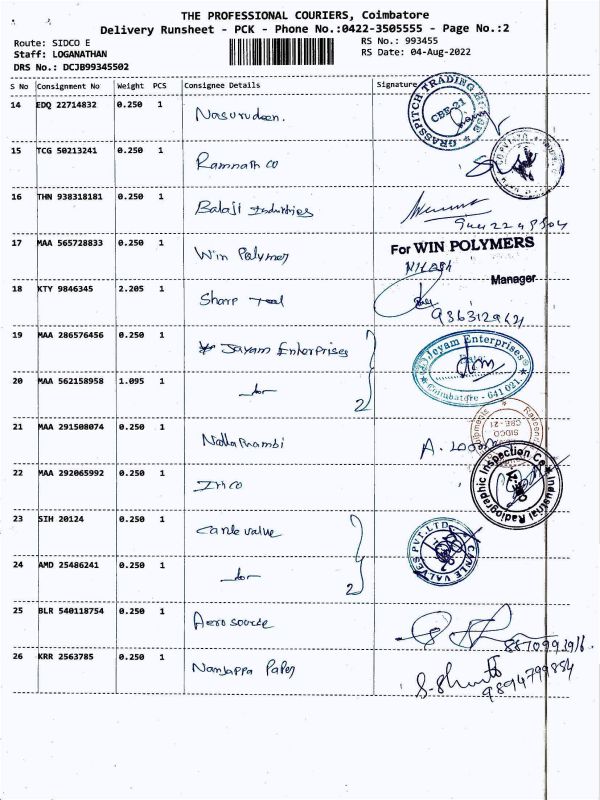 THE PROFESSIONAL COURIERS, Coimbatore
Delivery Runsheet - PCK - Phone No.:0422-3505555 - Page No.:2
Route: SIDCO E
RS No.: 993455
Staff: LOGANATHAN
RS Date: 04-Aug-2022
DRS No.: DCJB99345502
S No Consignment No Weight PCS Consignee Details Signature
14 EDQ 22714832 0.250 1 Nasurudeen.
GRASSPITCH TRADING HOUSE
CBE-21
15 TCG 50213241 0.250 1 Ramnath co
16 THN 938318181 0.250 1 Balaji Industries
17 MAA 565728833 0.250 1 Win Polymer
For WIN POLYMERS
Manager
18 KTY 9846345 2.205 1 Sharp Tool
19 MAA 286576456 0.250 1 Jayam Enterprises
Joyam Enterprises
Coimbatore - 641 021.
20 MAA 562158958 1.095 1 do
2
21 MAA 291508074 0.250 1 Nallathambi
SIDCO
CBE-21
22 MAA 292065992 0.250 1
Industrial Radiographic Inspection Co
23 SIH 20124 0.250 1 Carle valve
CARLE VALVES PVT.LTD
24 AMD 25486241 0.250 1 do
2
25 BLR 540118754 0.250 1 Aero source
26 KRR 2563785 0.250 1 Nanjappa Paper
9894799884